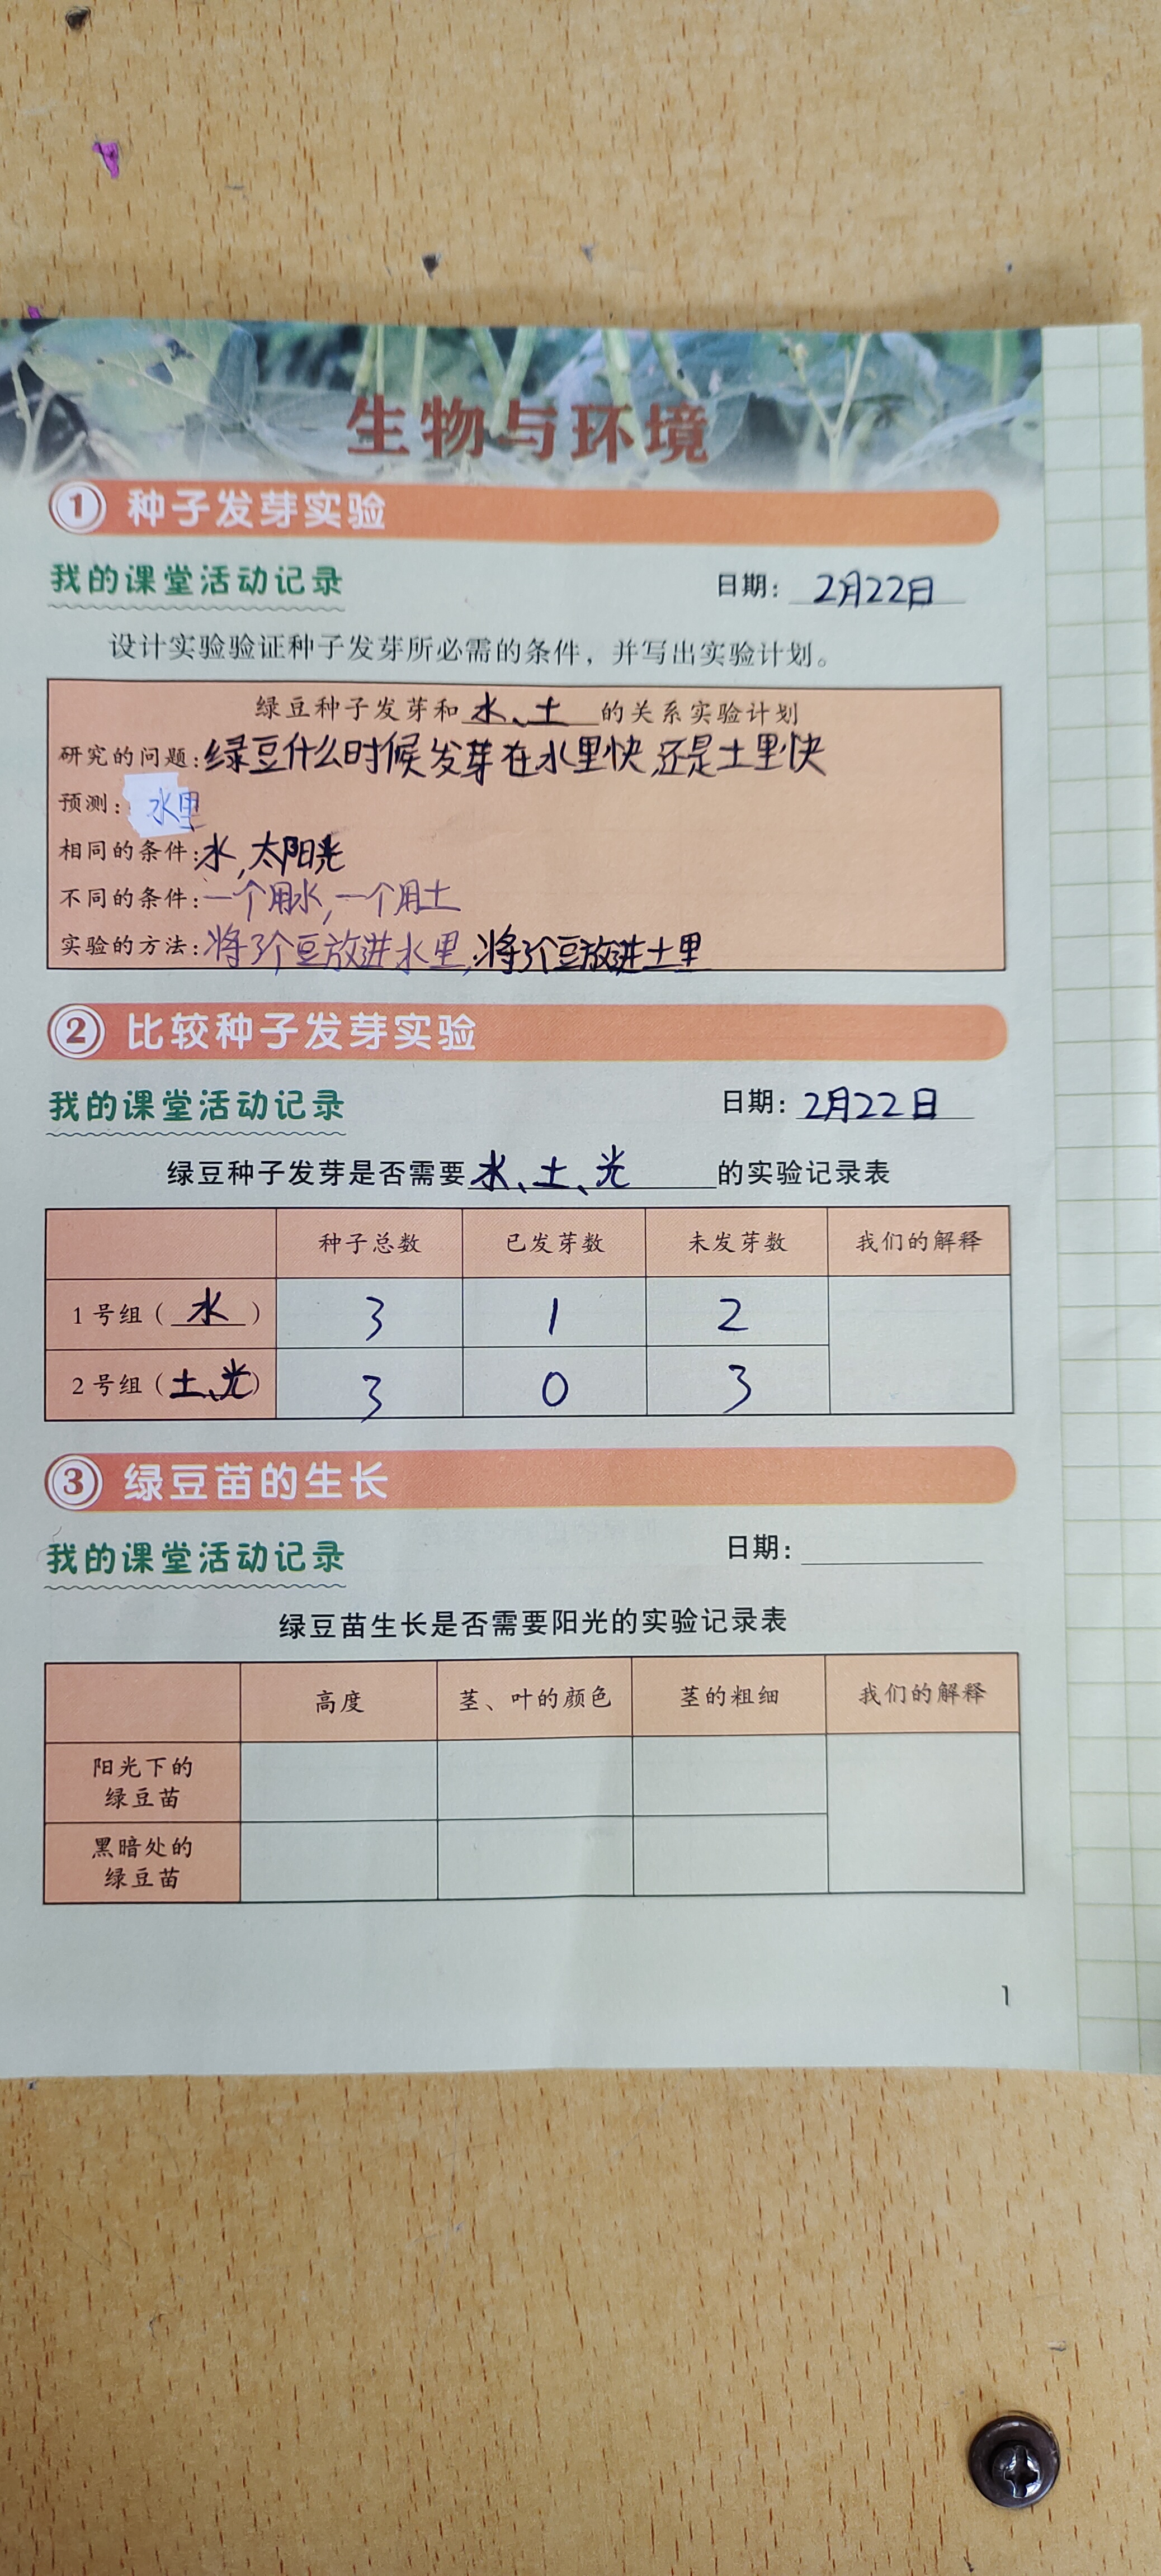 生物与环境
1 种子发芽实验
我的课堂活动记录 日期：2月22日
设计实验验证种子发芽所必需的条件，并写出实验计划。
绿豆种子发芽和水、土的关系实验计划
研究的问题：绿豆什么时候发芽在水里快还是土里快
预测：水里
相同的条件：水，太阳光
不同的条件：一个用水，一个用土
实验的方法：将3个豆放进水里，将3个豆放进土里
2 比较种子发芽实验
我的课堂活动记录 日期：2月22日
绿豆种子发芽是否需要水、土、光的实验记录表
种子总数 已发芽数 未发芽数 我们的解释
1号组（水） 3 1 2
2号组（土、光） 3 0 3
3 绿豆苗的生长
我的课堂活动记录 日期：
绿豆苗生长是否需要阳光的实验记录表
高度 茎、叶的颜色 茎的粗细 我们的解释
阳光下的
绿豆苗
黑暗处的
绿豆苗
1